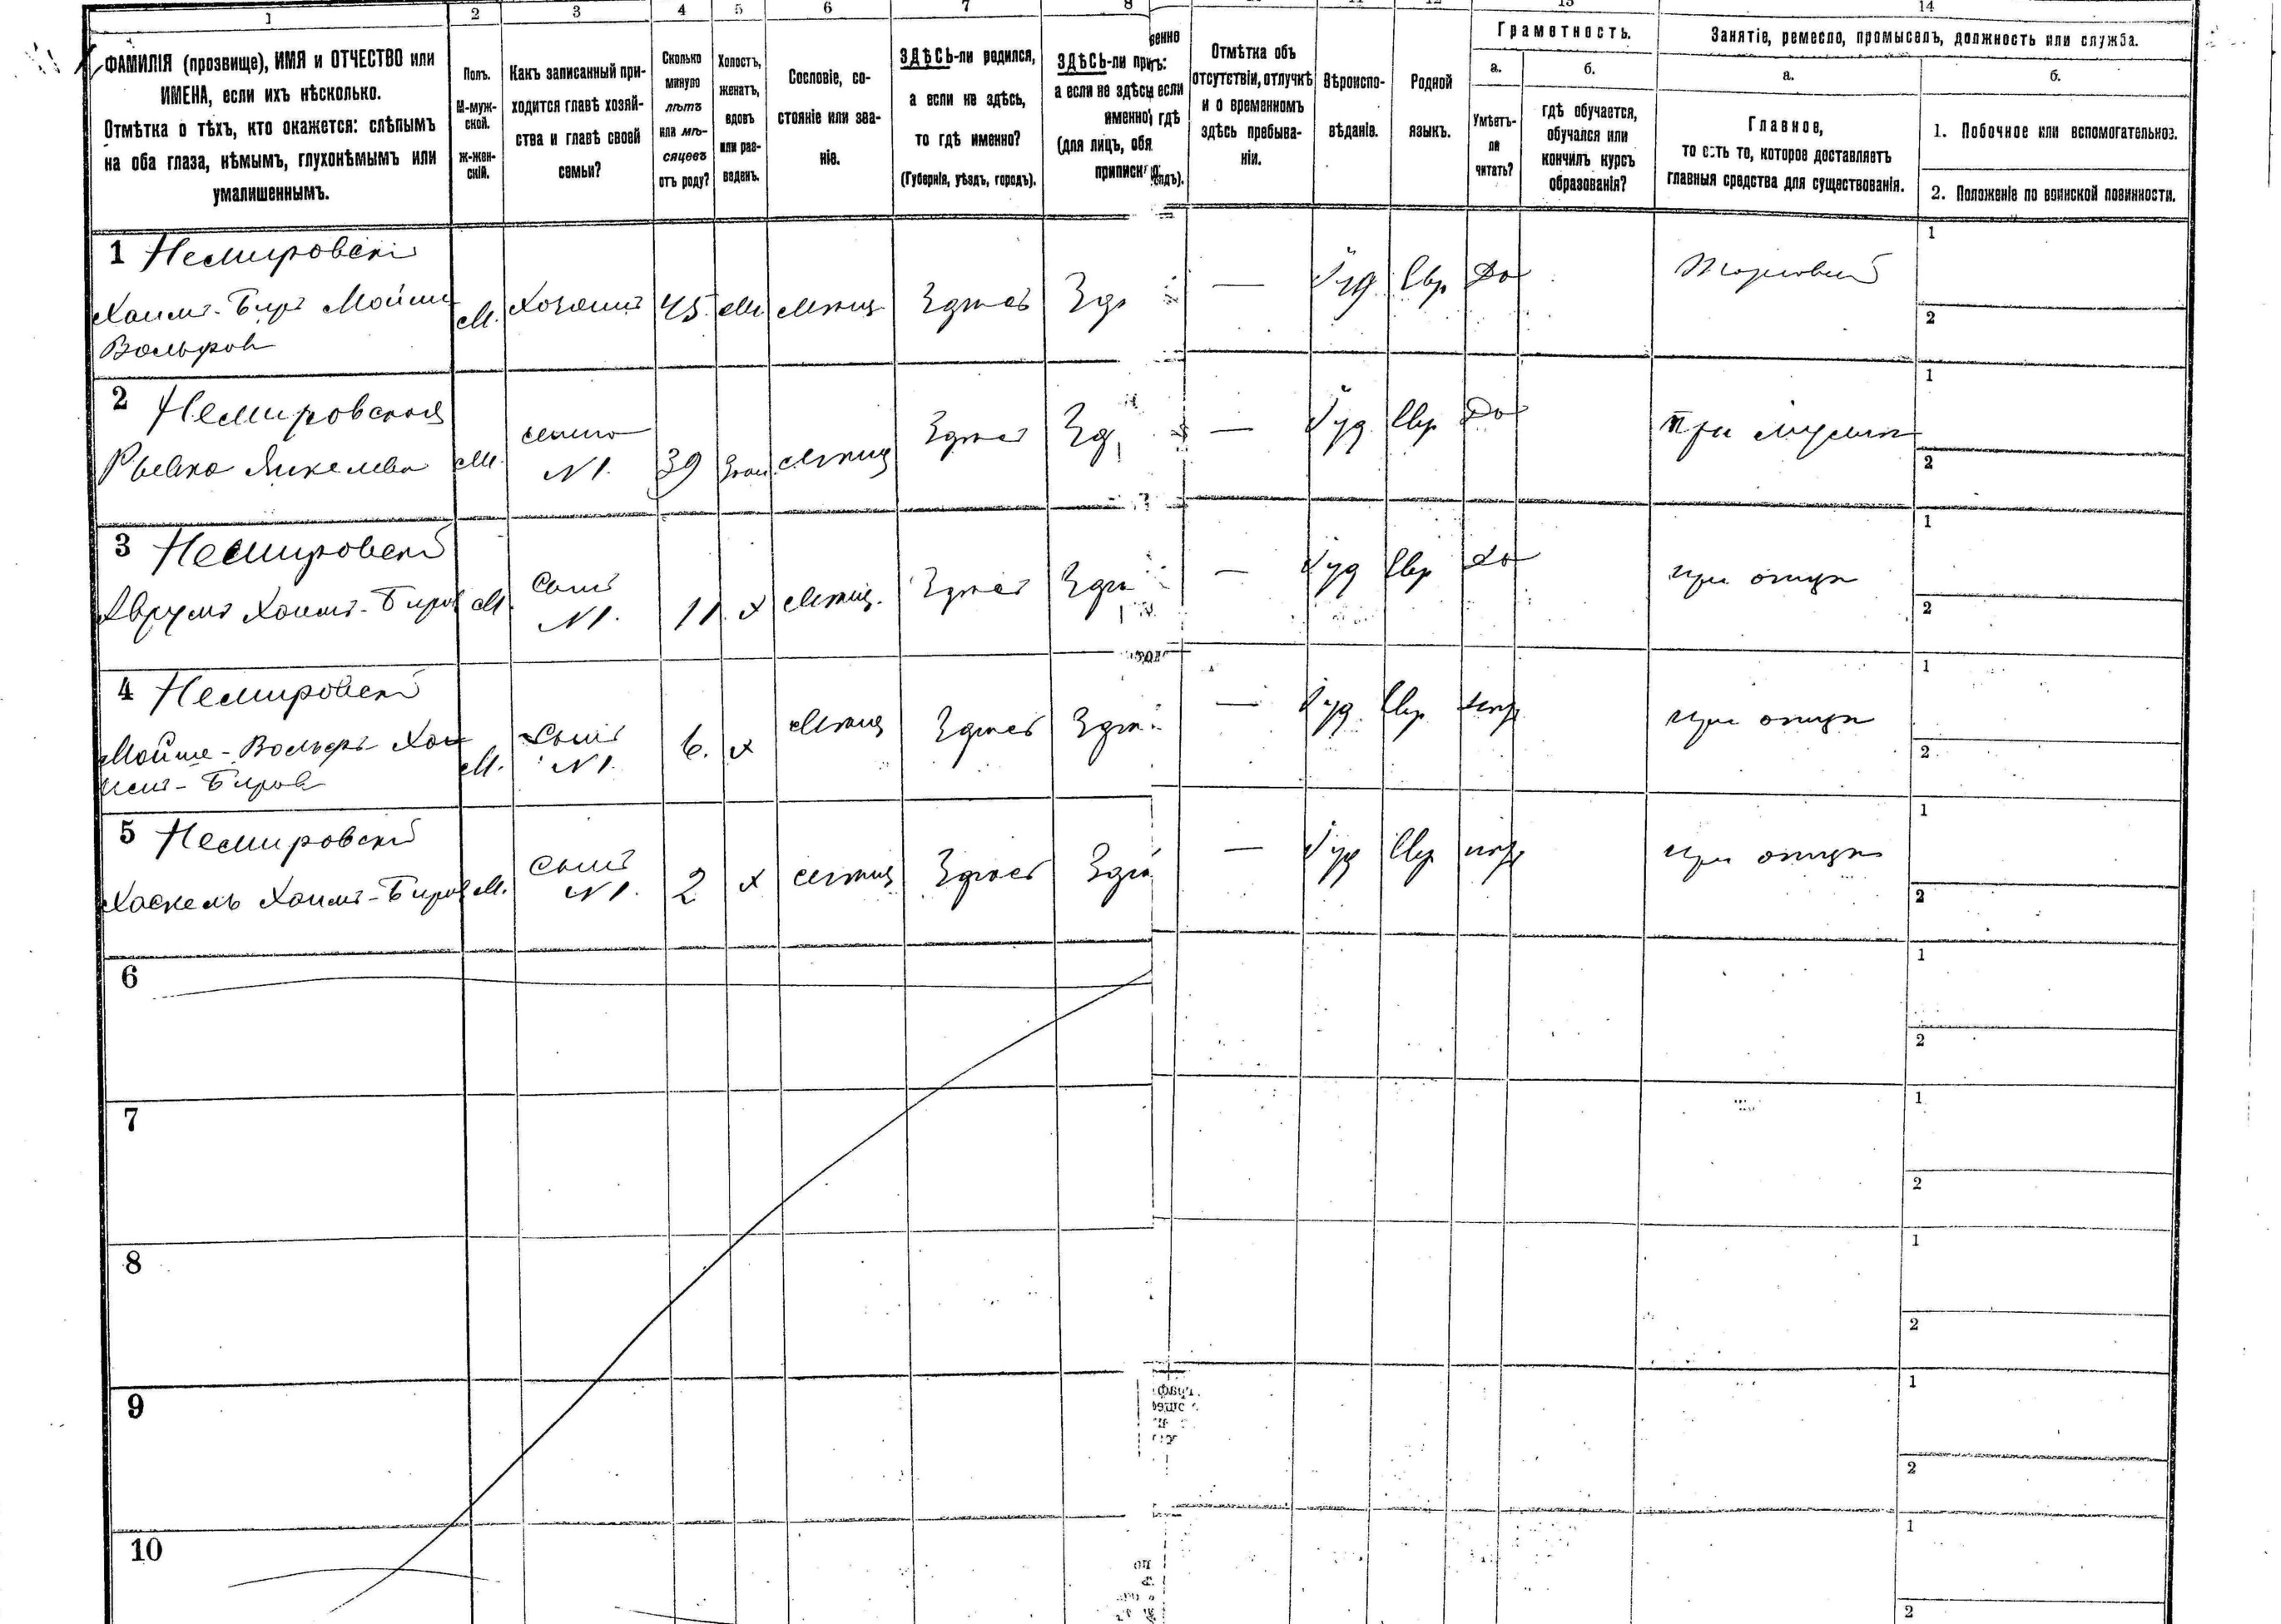 1 2 3 4 5 6 7 8 14
ФАМИЛІЯ (прозвище), ИМЯ и ОТЧЕСТВО или
ИМЕНА, если ихъ нѣсколько.
Отмѣтка о тѣхъ, кто окажется: слѣпымъ
на оба глаза, нѣмымъ, глухонѣмымъ или
умалишеннымъ.
Полъ.
М-муж-
ской.
Ж-жен-
скій.
Какъ записанный при-
ходится главѣ хозяй-
ства и главѣ своей
семьи?
Сколько
минуло
лѣтъ
или мѣ-
сяцевъ
отъ роду?
Холостъ,
женатъ,
вдовъ
или раз-
веденъ.
Сословіе, со-
стояніе или зва-
ніе.
ЗДѢСЬ-ли родился,
а если не здѣсь,
то гдѣ именно?
(Губернія, уѣздъ, городъ).
ЗДѢСЬ-ли
а если не здѣсь
именно
(для лицъ, обя
приписк
если
гдѣ
Отмѣтка объ
отсутствіи, отлучкѣ
и о временномъ
здѣсь пребыва-
ніи.
Вѣроиспо-
вѣданіе.
Родной
языкъ.
Грамотность.
а.
Умѣетъ-
ли
читать?
б.
гдѣ обучается,
обучался или
кончилъ курсъ
образованія?
Занятіе, ремесло, промыселъ, должность или служба.
а.
Главное,
то есть то, которое доставляетъ
главныя средства для существованія.
б.
1. Побочное или вспомогательное.
2. Положеніе по воинской повинности.
1 Немировскій
Хаимъ-Беръ Мойше
Вольфов
М. Хозяинъ 45 мѣщ Здѣсь Зд — Іуд Евр Да Торговый
1
2
2 Немировская
Рывка Янкелева
М. жена
N1. 39 мѣщ Здѣсь Зд — Іуд Евр Да при мужѣ
1
2
3 Немировскій
Аврумъ Хаимъ-Беров М.
Сынъ
N1. 11 х мѣщ. Здѣсь Здѣ — Іуд Евр Да при отцѣ
1
2
4 Немировскій
Мойше-Вольфъ Ха-
имъ-Беров
М. Сынъ
N1. 6. х мѣщ Здѣсь Здѣ — Іуд Евр при отцѣ
1
2
5 Немировскій
Хаскель Хаимъ-Беров М.
Сынъ
N1. 2 х мѣщ Здѣсь Здѣ — Іуд Евр при отцѣ
1
2
6
1
2
7
1
2
8
1
2
9
1
2
10
1
2